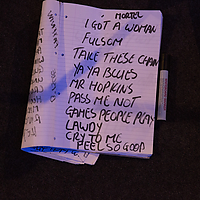 MORTEL
I GOT A WOMAN
FULSOM
TAKE THESE CHAIN
YA YA BLUES
MR HOPKINS
PASS ME NOT
GAMES PEOPLE PLAY
LAWDY
CRY TO ME
FEEL SO GOOD